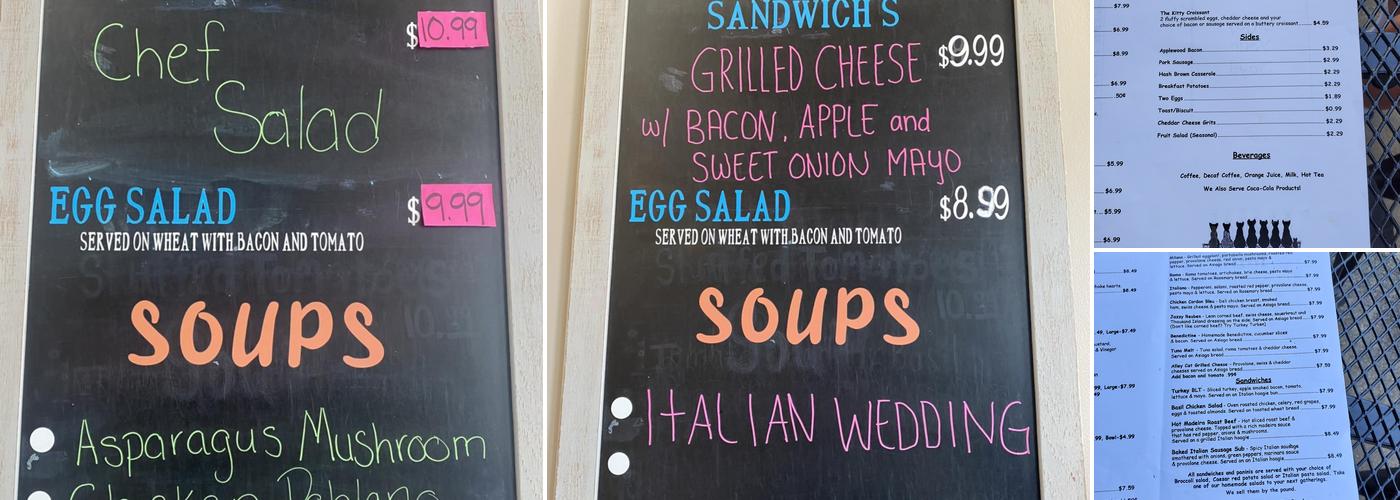 $10.99
Chef
Salad
EGG SALAD $9.99
SERVED ON WHEAT WITH BACON AND TOMATO
SOUPS
Asparagus Mushroom
Chicken Poblano
SANDWICH S
GRILLED CHEESE $9.99
w/ BACON, APPLE and
SWEET ONION MAYO
EGG SALAD $8.99
SERVED ON WHEAT WITH BACON AND TOMATO
SOUPS
ITALIAN WEDDING
$7.99
$6.99
$8.99
$6.99
.50¢
$5.99
$6.99
$5.99
$6.99
The Kitty Croissant
2 fluffy scrambled eggs, cheddar cheese and your
choice of bacon or sausage served on a buttery croissant $4.59
Sides
Applewood Bacon $3.29
Pork Sausage $2.99
Hash Brown Casserole $2.29
Breakfast Potatoes $2.29
Two Eggs $1.89
Toast/Biscuit $0.99
Cheddar Cheese Grits $2.29
Fruit Salad (Seasonal) $2.29
Beverages
Coffee, Decaf Coffee, Orange Juice, Milk, Hot Tea
We Also Serve Coca-Cola Products!
$6.49
$8.49
49, Large-$7.49
& Vinegar
99, Large-$7.99
99, Bowl-$4.99
$7.59
Milano - Grilled eggplant, portabella mushrooms, roasted red
pepper, provolone cheese, red onion, pesto mayo &
lettuce. Served on Asiago bread $7.99
Roma - Roma tomatoes, artichokes, brie cheese, pesto mayo
& lettuce. Served on Rosemary bread $7.99
Italiano - Pepperoni, salami, roasted red pepper, provolone cheese,
pesto mayo & lettuce. Served on Rosemary bread $7.99
Chicken Cordon Bleu - Deli chicken breast, smoked
ham, swiss cheese & pesto mayo. Served on Asiago bread $7.99
Jazzy Reuben - Lean corned beef, swiss cheese, sauerkraut and
Thousand Island dressing on the side. Served on Asiago bread $7.99
(Don't like corned beef? Try Turkey Turken)
Benedictine - Homemade Benedictine, cucumber slices
& bacon. Served on Asiago bread $7.99
Tuna Melt - Tuna salad, roma tomatoes & cheddar cheese.
Served on Asiago bread $7.99
Alley Cat Grilled Cheese - Provolone, swiss & cheddar
cheeses served on Asiago bread $7.50
Add bacon and tomato .99¢
Sandwiches
Turkey BLT - Sliced turkey, apple smoked bacon, tomato,
lettuce & mayo. Served on an Italian hoagie bun $7.99
Basil Chicken Salad - Oven roasted chicken, celery, red grapes,
eggs & toasted almonds. Served on toasted wheat bread $7.99
Hot Madeira Roast Beef - Hot sliced roast beef &
provolone cheese. Topped with a rich madeira sauce
that has red pepper, onions & mushrooms.
Served on a grilled Italian hoagie $8.49
Baked Italian Sausage Sub - Spicy Italian sausage
smothered with onions, green peppers, marinara sauce
& provolone cheese. Served on an Italian hoagie $8.49
All sandwiches and paninis are served with your choice of
Broccoli salad, Caesar red potato salad or Italian pasta salad. Take
one of our homemade salads to your next gatherings.
We sell them by the pound.